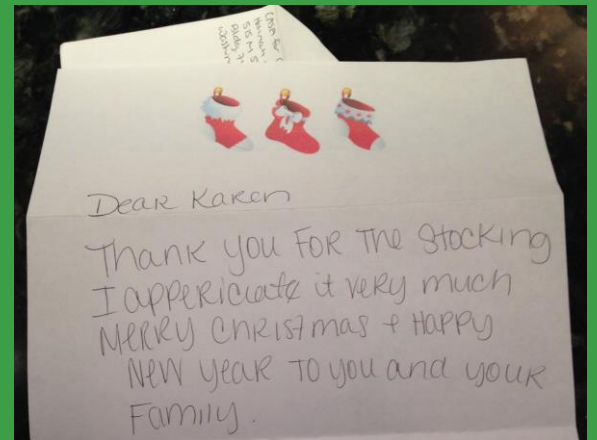 Dear Karen
Thank you for the Stocking
I appericiate it very much
Merry Christmas + Happy
New year to you and your
Family.